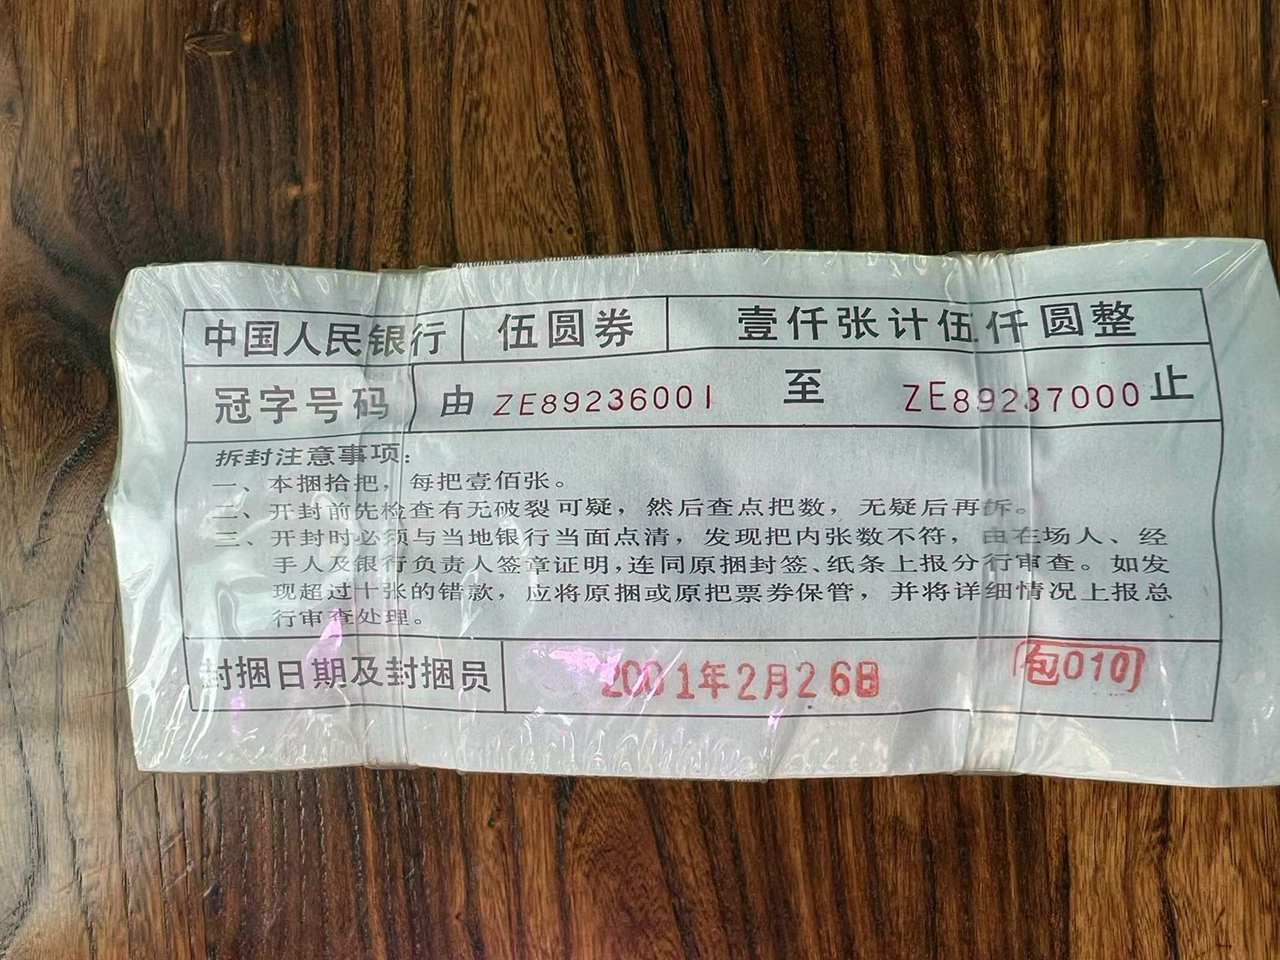 中国人民银行 伍圆券 壹仟张计伍仟圆整
冠字号码 由 ZE89236001 至 ZE89237000 止
拆封注意事项：
一、本捆拾把，每把壹佰张。
二、开封前先检查有无破裂可疑，然后查点把数，无疑后再拆。
三、开封时必须与当地银行当面点清，发现把内张数不符，由在场人、经
手人及银行负责人签章证明，连同原捆封签、纸条上报分行审查。如发
现超过十张的错款，应将原捆或原把票券保管，并将详细情况上报总
行审查处理。
封捆日期及封捆员 2001年2月26日 包010